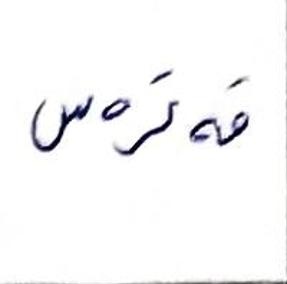 قەترەس